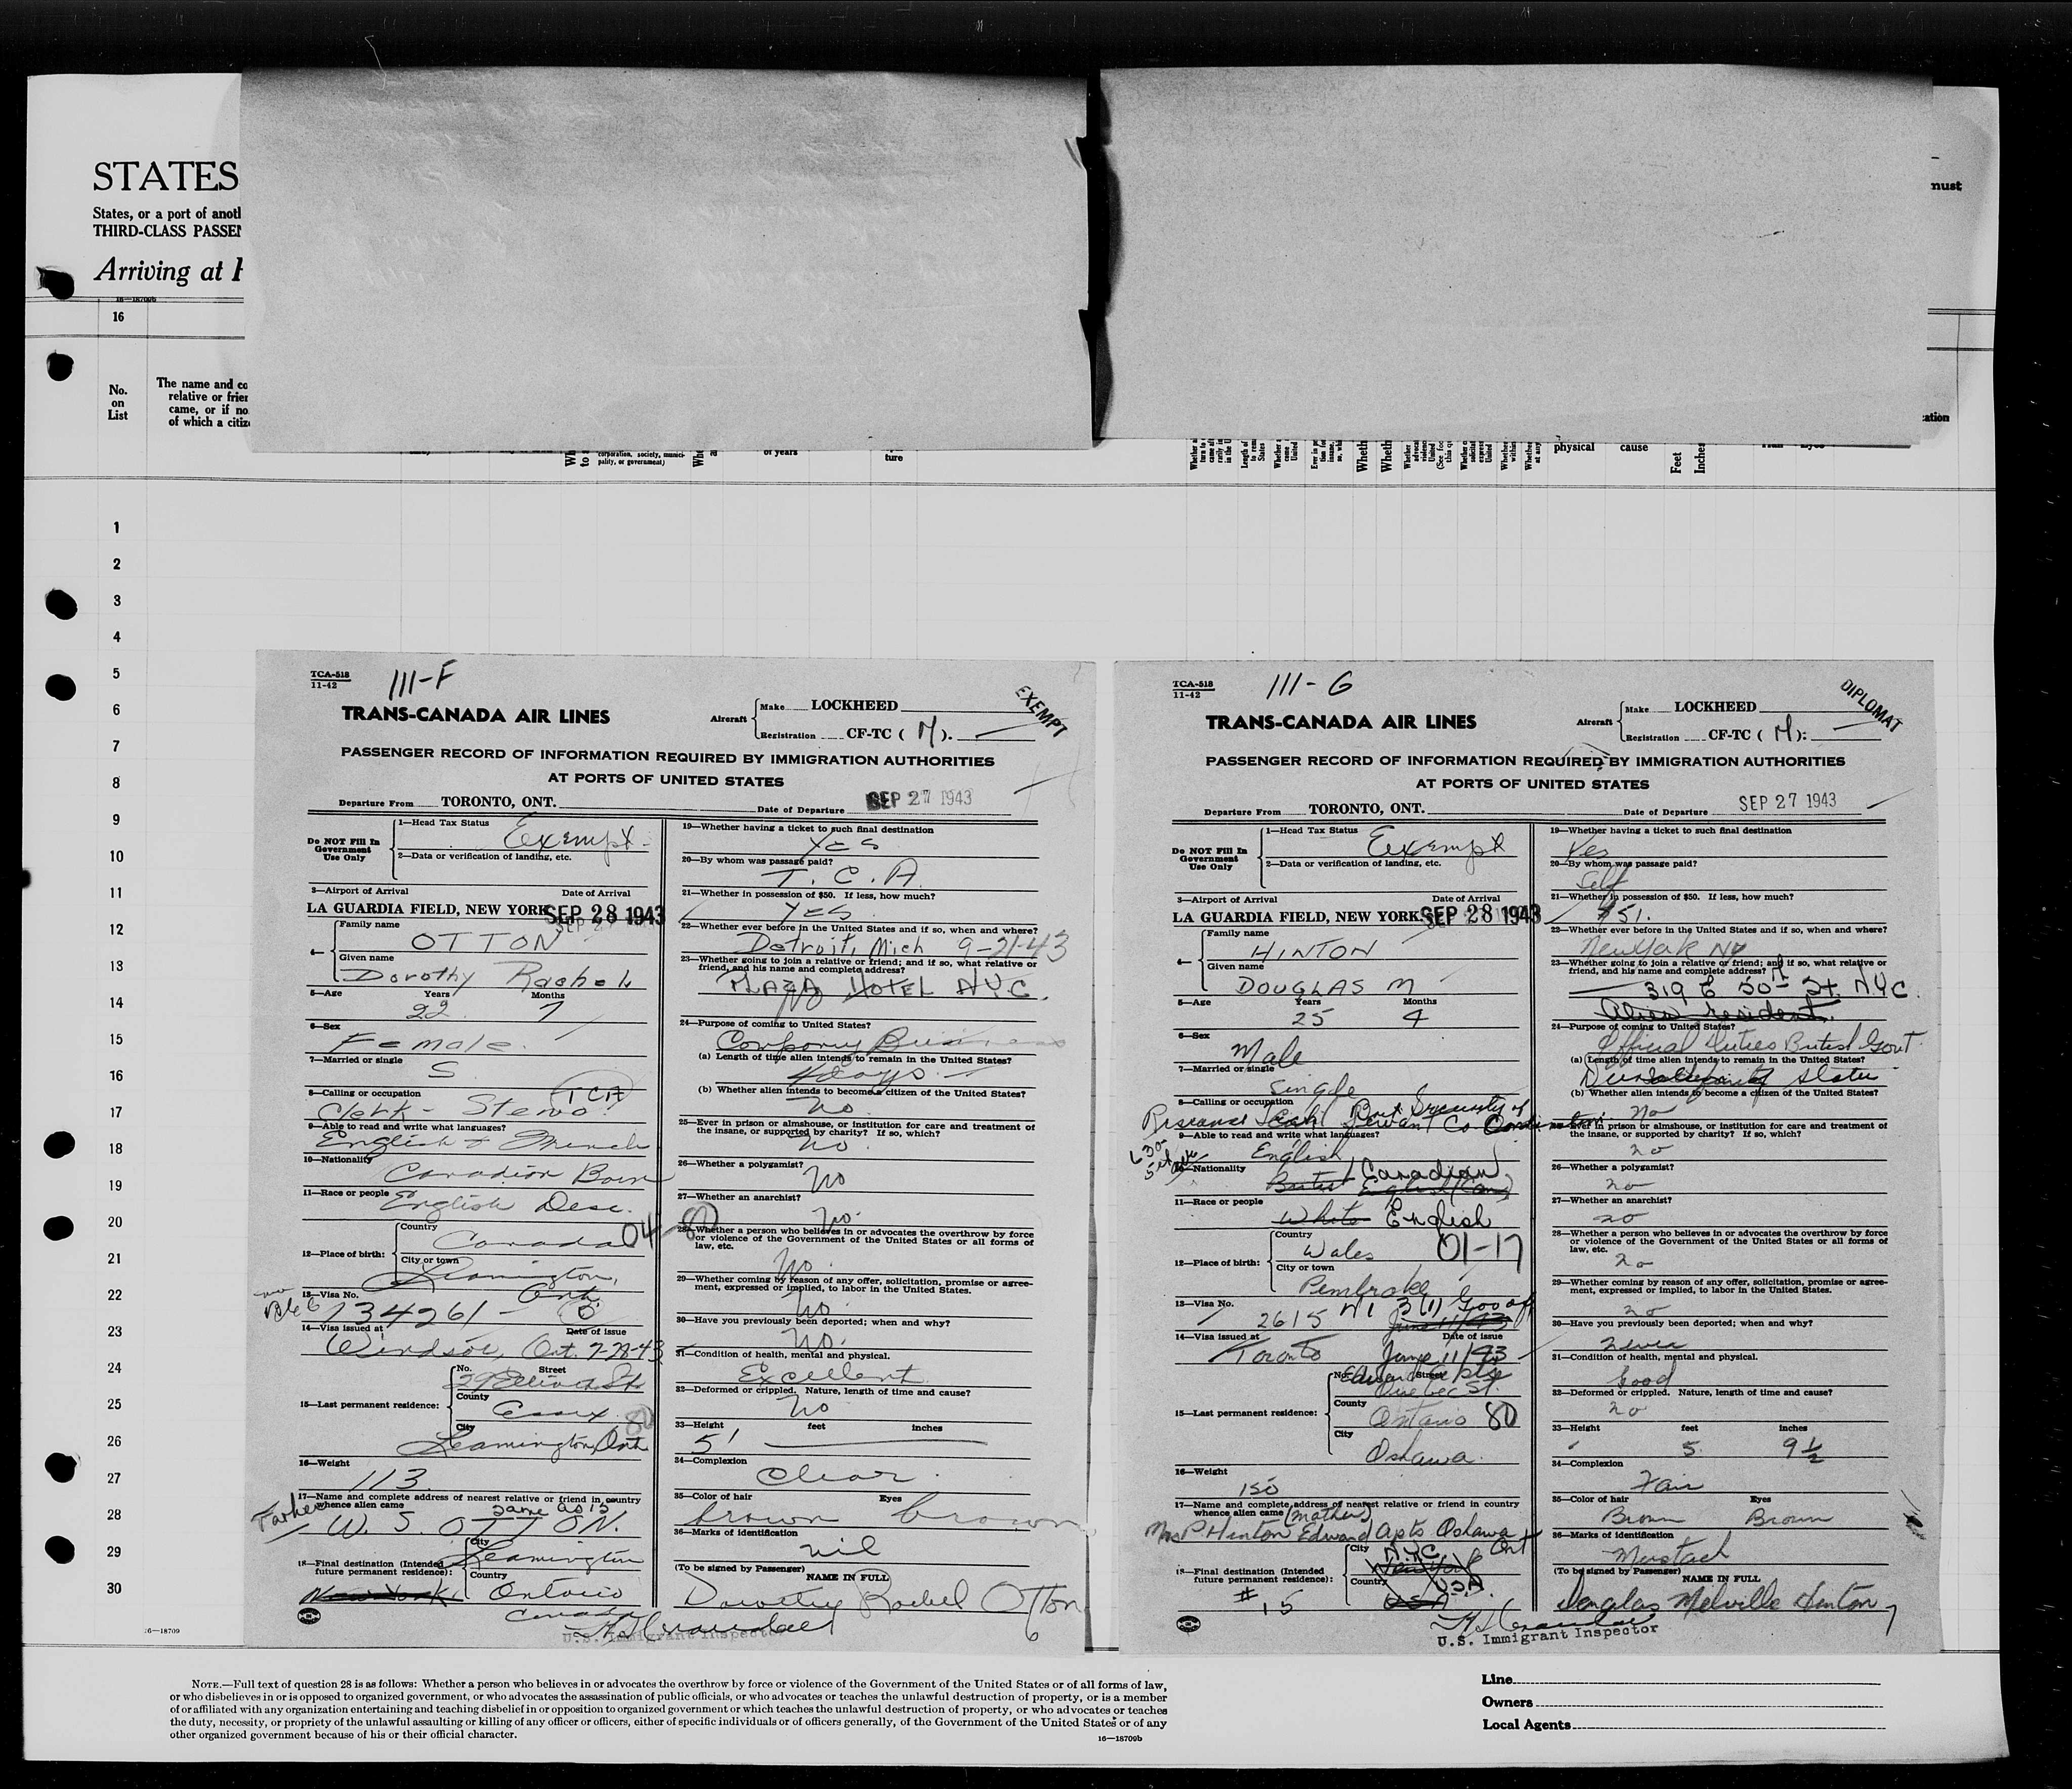 STATES
States, or a port of anotl
THIRD-CLASS PASSEN
Arriving at
16—18709b
16
No.
on
List
The name and co
relative or frien
came, or if no
of which a citiz
corporation, society, munici-
pality, or government)
of years
ture
must
cation
physical
cause
Feet
Inches
1
2
3
4
5
6
7
8
9
10
11
12
13
14
15
16
17
18
19
20
21
22
23
24
25
26
27
28
29
30
16—18709
TCA-518
11-42
111-F
TRANS-CANADA AIR LINES
Aircraft
Make LOCKHEED
Registration CF-TC ( M ).
EXEMPT
PASSENGER RECORD OF INFORMATION REQUIRED BY IMMIGRATION AUTHORITIES
AT PORTS OF UNITED STATES
Departure From TORONTO, ONT. Date of Departure SEP 27 1943
Do NOT Fill In
Government
Use Only
1—Head Tax Status Exempt
2—Data or verification of landing, etc.
3—Airport of Arrival Date of Arrival
LA GUARDIA FIELD, NEW YORK SEP 28 1943
4—
Family name
OTTON
Given name
Dorothy Rachel
5—Age Years Months
22 7
6—Sex
Female.
7—Married or single
S
8—Calling or occupation TCA
Clerk - Steno
9—Able to read and write what languages?
English & French
10—Nationality
Canadian Born
11—Race or people English Desc.
12—Place of birth:
Country
Canada 04-80
City or town
Leamington,
Ont.
13—Visa No.
134261
14—Visa issued at Date of issue
Windsor, Ont. 7-28-43
15—Last permanent residence:
No. Street
County
Essex 80
City
Leamington, Ont
16—Weight
113
17—Name and complete address of nearest relative or friend in country
whence alien came same as 15
Father
W. S. OTTON.
18—Final destination (Intended
future permanent residence):
City
Leamington
Country
New York Ontario
Canada
U.S. Immigrant Inspector
19—Whether having a ticket to such final destination
Yes
20—By whom was passage paid?
T. C. A.
21—Whether in possession of $50. If less, how much?
Yes
22—Whether ever before in the United States and if so, when and where?
Detroit, Mich 9-21-43
23—Whether going to join a relative or friend; and if so, what relative or
friend, and his name and complete address?
PLAZA HOTEL N.Y.C.
No
24—Purpose of coming to United States?
Company Business
(a) Length of time alien intends to remain in the United States?
4 days
(b) Whether alien intends to become a citizen of the United States?
no
25—Ever in prison or almshouse, or institution for care and treatment of
the insane, or supported by charity? If so, which?
no
26—Whether a polygamist?
no
27—Whether an anarchist?
no.
28—Whether a person who believes in or advocates the overthrow by force
or violence of the Government of the United States or all forms of
law, etc.
no
29—Whether coming by reason of any offer, solicitation, promise or agree-
ment, expressed or implied, to labor in the United States.
no
30—Have you previously been deported; when and why?
no.
31—Condition of health, mental and physical.
Excellent
32—Deformed or crippled. Nature, length of time and cause?
no
33—Height feet inches
5'
34—Complexion
Clear
35—Color of hair Eyes
brown brown
36—Marks of identification
nil
(To be signed by Passenger) NAME IN FULL
Dorothy Rachel Otton
6
TCA-518
11-42
111-G
TRANS-CANADA AIR LINES
Aircraft
Make LOCKHEED
Registration CF-TC ( M ):
DIPLOMAT
PASSENGER RECORD OF INFORMATION REQUIRED BY IMMIGRATION AUTHORITIES
AT PORTS OF UNITED STATES
Departure From TORONTO, ONT. Date of Departure SEP 27 1943
Do NOT Fill In
Government
Use Only
1—Head Tax Status Exempt
2—Data or verification of landing, etc.
3—Airport of Arrival Date of Arrival
LA GUARDIA FIELD, NEW YORK. SEP 28 1943
4—
Family name
HINTON
Given name
DOUGLAS M
5—Age Years Months
25 4
6—Sex
Male
7—Married or single
Single
8—Calling or occupation
Brit Security
9—Able to read and write what languages?
English
10—Nationality
Canadian
11—Race or people
White English
12—Place of birth:
Country
Wales 01-17
City or town
Pembroke
13—Visa No.
2615
14—Visa issued at Date of issue
Toronto June 11/43
15—Last permanent residence:
No. Street
Quebec St.
County
Ontario 80
City
Oshawa.
16—Weight
150
17—Name and complete address of nearest relative or friend in country
whence alien came (mother)
Mrs P Hinton Edward Apts Oshawa
Ont
18—Final destination (Intended
future permanent residence):
City N.Y.C.
New York
Country U.S.A.
USA
# 15
U.S. Immigrant Inspector
19—Whether having a ticket to such final destination
Yes
20—By whom was passage paid?
Self
21—Whether in possession of $50. If less, how much?
$51.
22—Whether ever before in the United States and if so, when and where?
New York NY
23—Whether going to join a relative or friend; and if so, what relative or
friend, and his name and complete address?
319 E 50th St. N.Y.C.
Alien resident.
24—Purpose of coming to United States?
Official Duties British Govt
(a) Length of time alien intends to remain in the United States?
status
(b) Whether alien intends to become a citizen of the United States?
no
25—Ever in prison or almshouse, or institution for care and treatment of
the insane, or supported by charity? If so, which?
no
26—Whether a polygamist?
no
27—Whether an anarchist?
no
28—Whether a person who believes in or advocates the overthrow by force
or violence of the Government of the United States or all forms of
law, etc.
no
29—Whether coming by reason of any offer, solicitation, promise or agree-
ment, expressed or implied, to labor in the United States.
no
30—Have you previously been deported; when and why?
never
31—Condition of health, mental and physical.
Good
32—Deformed or crippled. Nature, length of time and cause?
no
33—Height feet inches
5 9 1/2
34—Complexion
Fair
35—Color of hair Eyes
Brown Brown
36—Marks of identification
Mustach
(To be signed by Passenger) NAME IN FULL
Douglas Melville Hinton
7
NOTE.—Full text of question 28 is as follows: Whether a person who believes in or advocates the overthrow by force or violence of the Government of the United States or of all forms of law,
or who disbelieves in or is opposed to organized government, or who advocates the assassination of public officials, or who advocates or teaches the unlawful destruction of property, or is a member
of or affiliated with any organization entertaining and teaching disbelief in or opposition to organized government or which teaches the unlawful destruction of property, or who advocates or teaches
the duty, necessity, or propriety of the unlawful assaulting or killing of any officer or officers, either of specific individuals or of officers generally, of the Government of the United States or of any
other organized government because of his or their official character.
16—18709b
Line
Owners
Local Agents